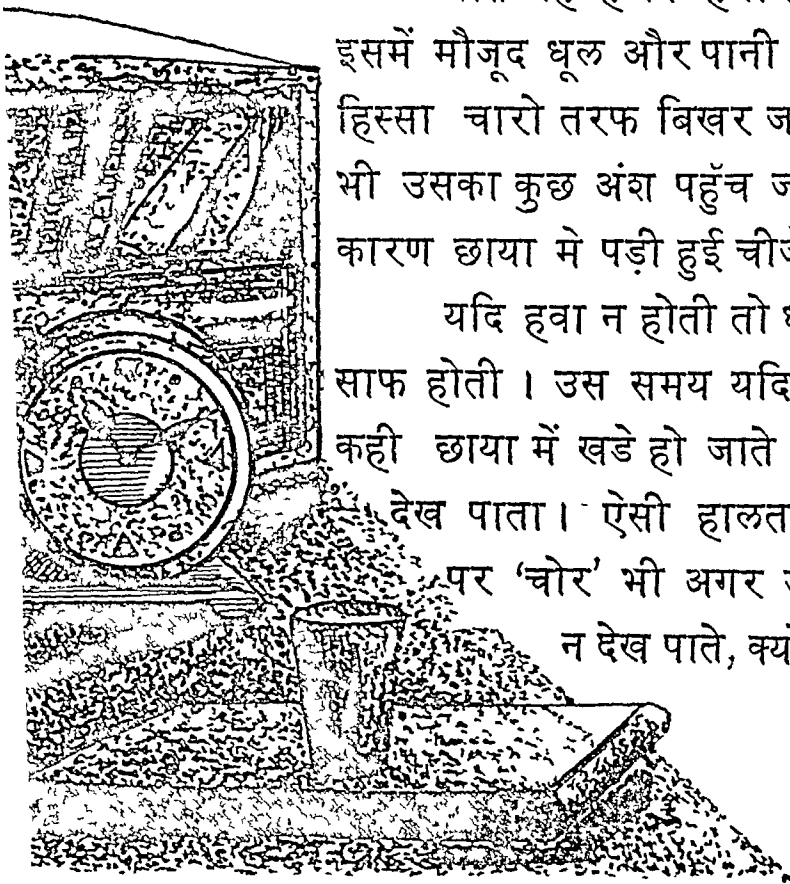 इसमें मौजूद धूल और पानी
हिस्सा चारो तरफ बिखर
भी उसका कुछ अंश पहुँच
कारण छाया मे पड़ी हुई
यदि हवा न होती तो
साफ होती । उस समय यदि
कही छाया में खडे हो जाते
देख पाता । ऐसी हालत
पर ‘चोर’ भी अगर
न देख पाते,